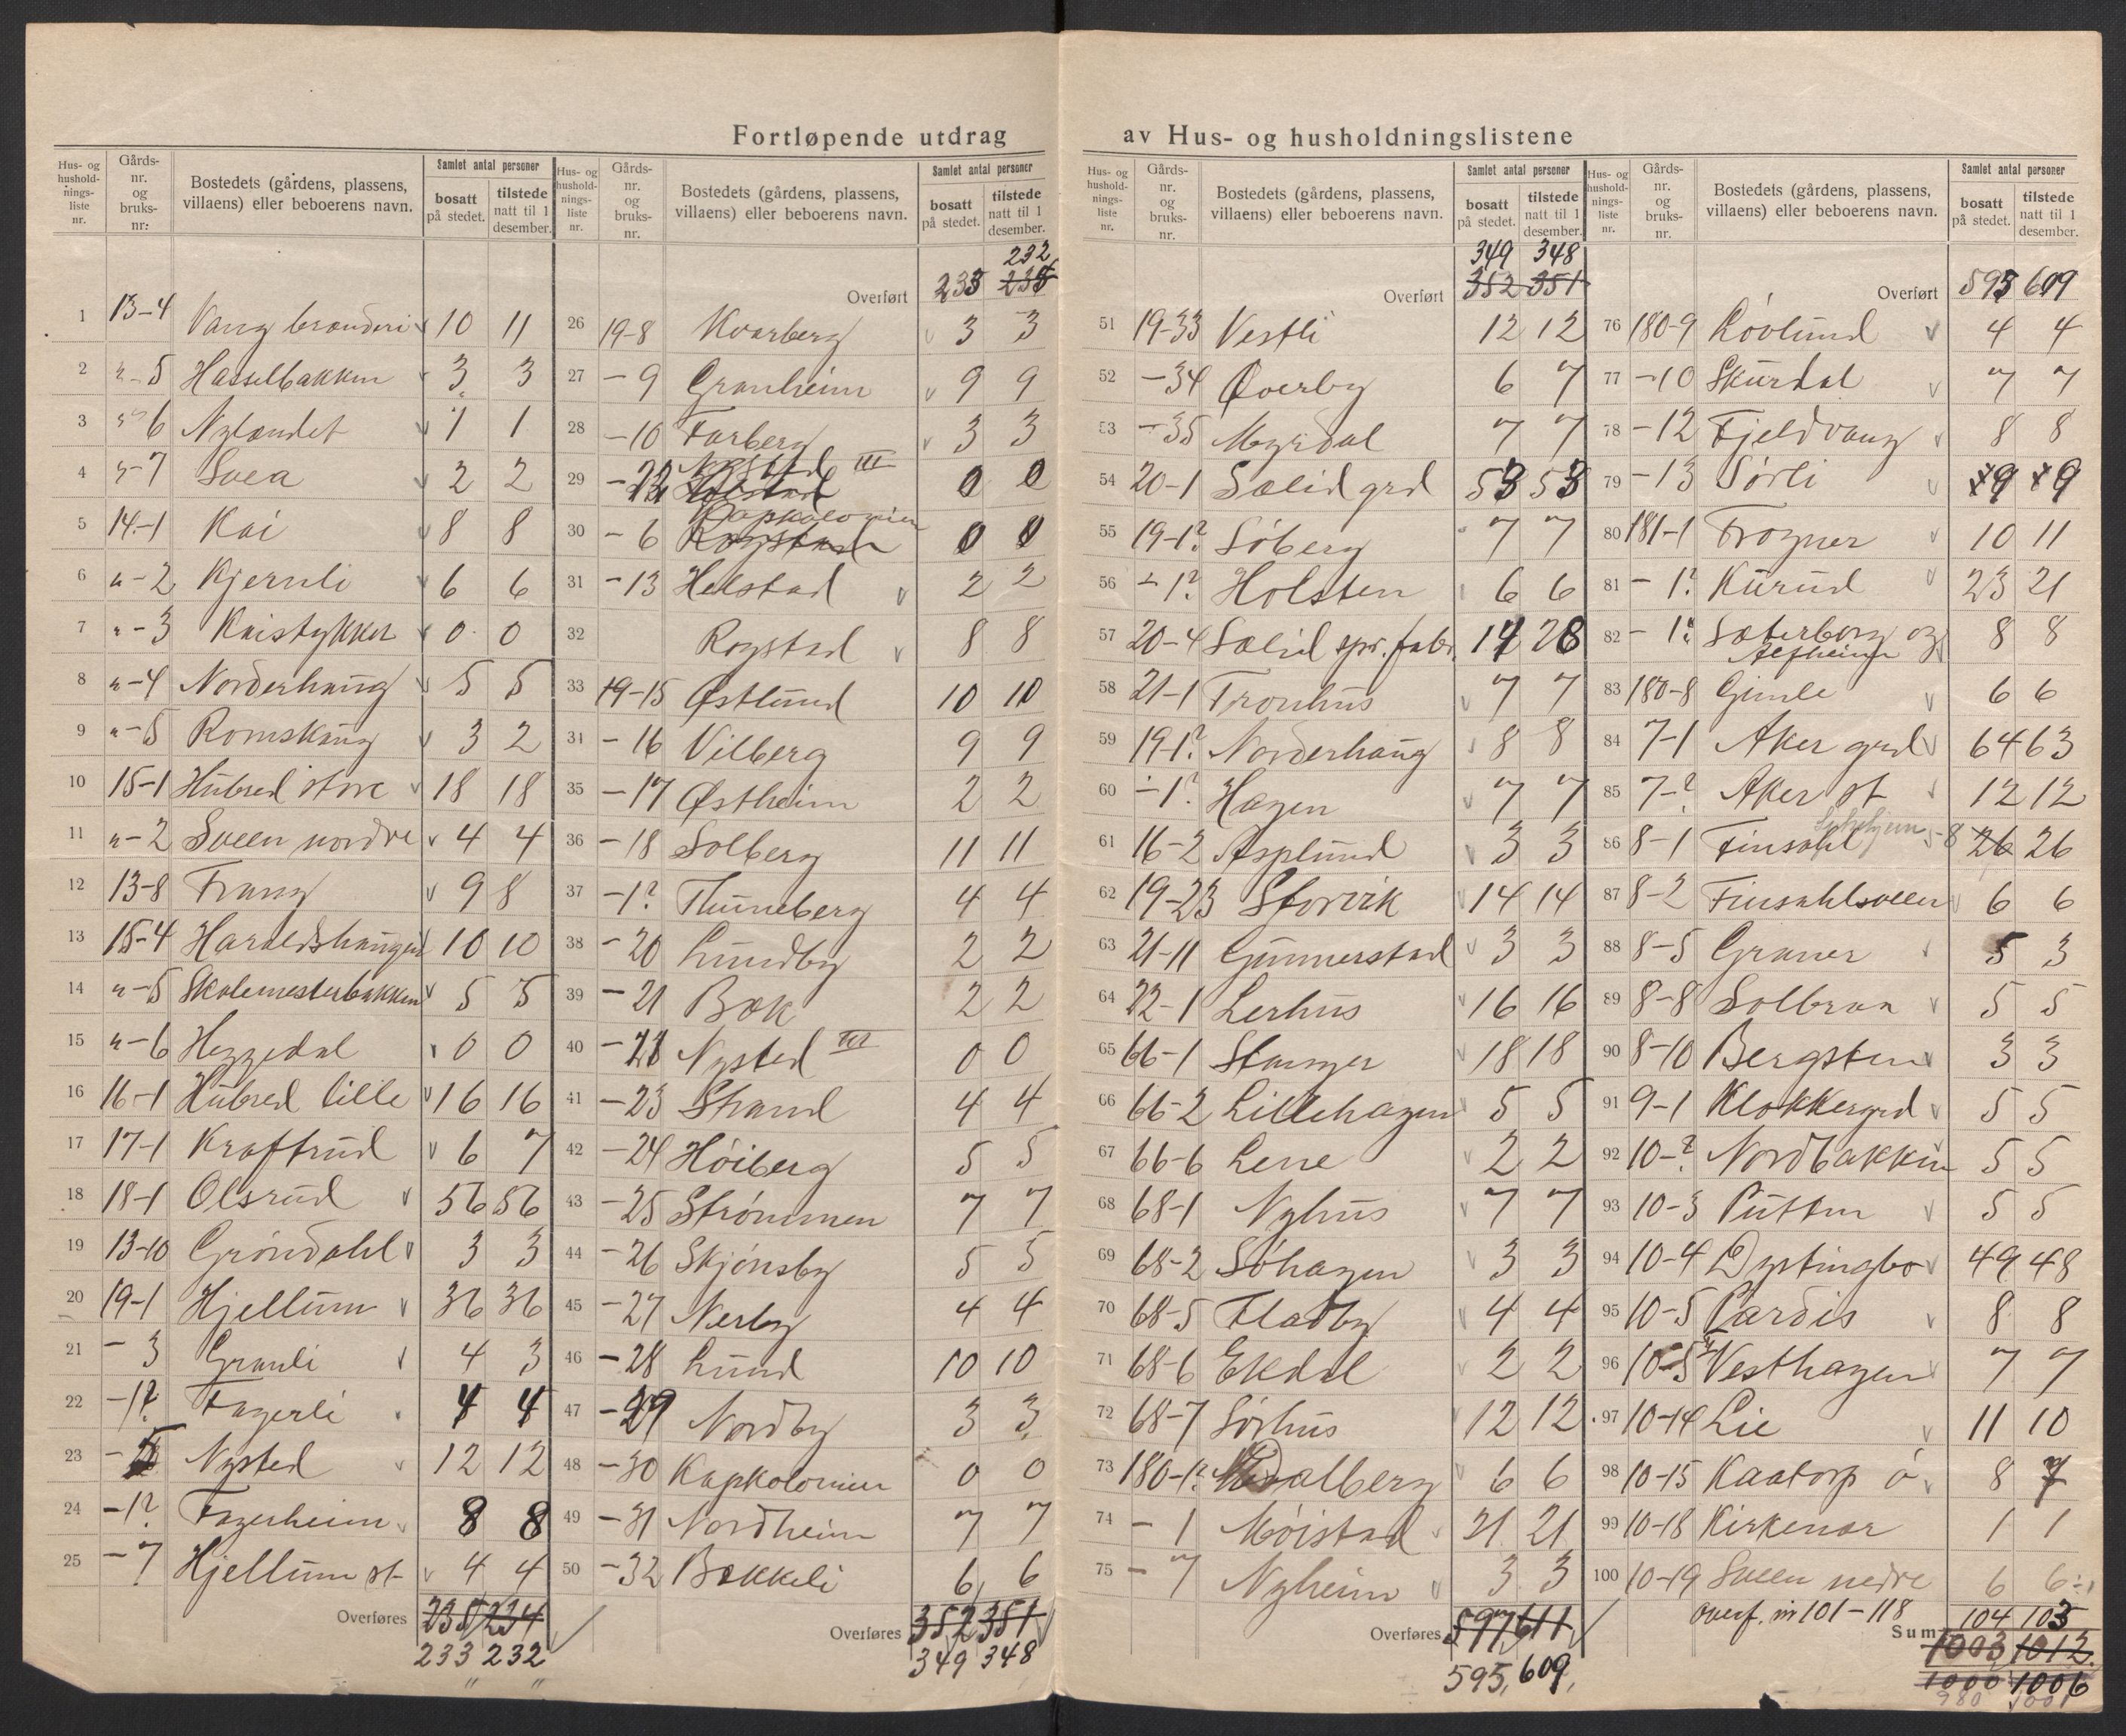 Fortløpende utdrag av Hus- og husholdningslistene
Hus- og husholdnings-liste nr. | Gårds-nr. og bruks-nr. | Bostedets (gårdens, plassens, villaens) eller beboerens navn. | Samlet antal personer | bosatt på stedet. | tilstede natt til 1 desember.
1 13-4 Vang brænderi 10 11
2 "-5 Hasselbakken 3 3
3 "-6 Nylændet 1 1
4 "-7 Svea 2 2
5 14-1 Kai 8 8
6 "-2 Kjernli 6 6
7 "-3 Kaistykker 0 0
8 "-4 Norderhaug 5 5
9 "-5 Romskaug 3 2
10 15-1 Hubred store 18 18
11 "-2 Sveen nordre 4 4
12 13-8 Frang 9 8
13 15-4 Haraldshaugen 10 10
14 "-5 Skolemesterbakken 5 5
15 "-6 Heggedal 0 0
16 16-1 Hubred lille 16 16
17 17-1 Kraftrud 6 7
18 18-1 Olsrud 56 56
19 13-10 Gröndahl 3 3
20 19-1 Hjellum 36 36
21 -3 Granli 4 3
22 -1? Fagerli 4 4
23 Nysted 12 12
24 -1? Fagerheim 8 8
25 -7 Hjellum st 4 4
Overføres 235 234
233 232
Hus- og husholdnings-liste nr. | Gårds-nr. og bruks-nr. | Bostedets (gårdens, plassens, villaens) eller beboerens navn. | Samlet antal personer | bosatt på stedet. | tilstede natt til 1 desember.
232
Overført 233
26 19-8 Kvarberg 3 3
27 -9 Granheim 9 9
28 -10 Farberg 3 3
29 Nysted III 0 0
30 -6 Kapkolonien Rogstad 0 0
31 -13 Helstad 2 2
32 Rogstad 8 8
33 19-15 Østlund 10 10
34 -16 Vilberg 9 9
35 -17 Østheim 2 2
36 -18 Solberg 11 11
37 -1? Thuneberg 4 4
38 -20 Lundby 2 2
39 -21 Bæk 2 2
40 Nysted III 0 0
41 -23 Strand 4 4
42 -24 Höiberg 5 5
43 -25 Strömmen 7 7
44 -26 Skjönsby 5 5
45 -27 Nerby 4 4
46 -28 Lund 10 10
47 -29 Nordby 3 3
48 -30 Kapkolonien 0 0
49 -31 Nordheim 7 7
50 -32 Bækkeli 6 6
Overføres 352 351
349 348
Hus- og husholdnings-liste nr. | Gårds-nr. og bruks-nr. | Bostedets (gårdens, plassens, villaens) eller beboerens navn. | Samlet antal personer | bosatt på stedet. | tilstede natt til 1 desember.
349 348
Overført 352 351
51 19-33 Vestli 12 12
52 -34 Øverby 6 7
53 -35 Myrdal 7 7
54 20-1 Sælid grd 53 53
55 19-1? Söberg 7 7
56 -1? Holsten 6 6
57 20-4 Sælid spr. fabr. 17 28
58 21-1 Tronhus 7 7
59 19-1? Norderhaug 8 8
60 -1? Hagen 7 7
61 16-2 Asplund 3 3
62 19-23 Storvik 14 14
63 21-11 Gunnerstad 3 3
64 22-1 Lerhus 16 16
65 66-1 Stanger 18 18
66 66-2 Lillehagen 5 5
67 66-6 Lene 2 2
68 68-1 Nyhus 7 7
69 68-2 Söhagen 3 3
70 68-5 Fladby 4 4
71 68-6 Ekdal 2 2
72 68-7 Sörhus 12 12
73 180-1? Kvalberg 6 6
74 -1 Möistad 21 21
75 -7 Nyheim 3 3
Overføres 597 611
595, 609,
Hus- og husholdnings-liste nr. | Gårds-nr. og bruks-nr. | Bostedets (gårdens, plassens, villaens) eller beboerens navn. | Samlet antal personer | bosatt på stedet. | tilstede natt til 1 desember.
Overført 595 609
76 180-9 Rövlund 4 4
77 -10 Skurdal 7 7
78 -12 Fjeldvang 8 8
79 -13 Sörli 9 9
80 181-1 Frogner 10 11
81 -1? Kurud 23 21
82 -1? Sæterberg og Alfheim 8 8
83 180-8 Gimle 6 6
84 7-1 Aker grd 64 63
85 7-? Aker st 12 12
86 8-1 Finsahl 26 26
87 8-2 Finsahlsveen 6 6
88 8-5 Graner 5 3
89 8-8 Solbraa 5 5
90 8-10 Bergsten 3 3
91 9-1 Klokkergrd 5 5
92 10-? Nordbakken 5 5
93 10-3 Putten 5 5
94 10-4 Dystingbo 49 48
95 10-5 Pardis 8 8
96 Vesthagen 7 7
97 10-14 Lie 11 10
98 10-15 Kaatorp ö 8 7
99 10-18 Kirkenær 1 1
100 10-19 Sveen nedre 6 6
overf. nr 101-118 104 103
Sum 1003 1012
1000 1006
980 1001